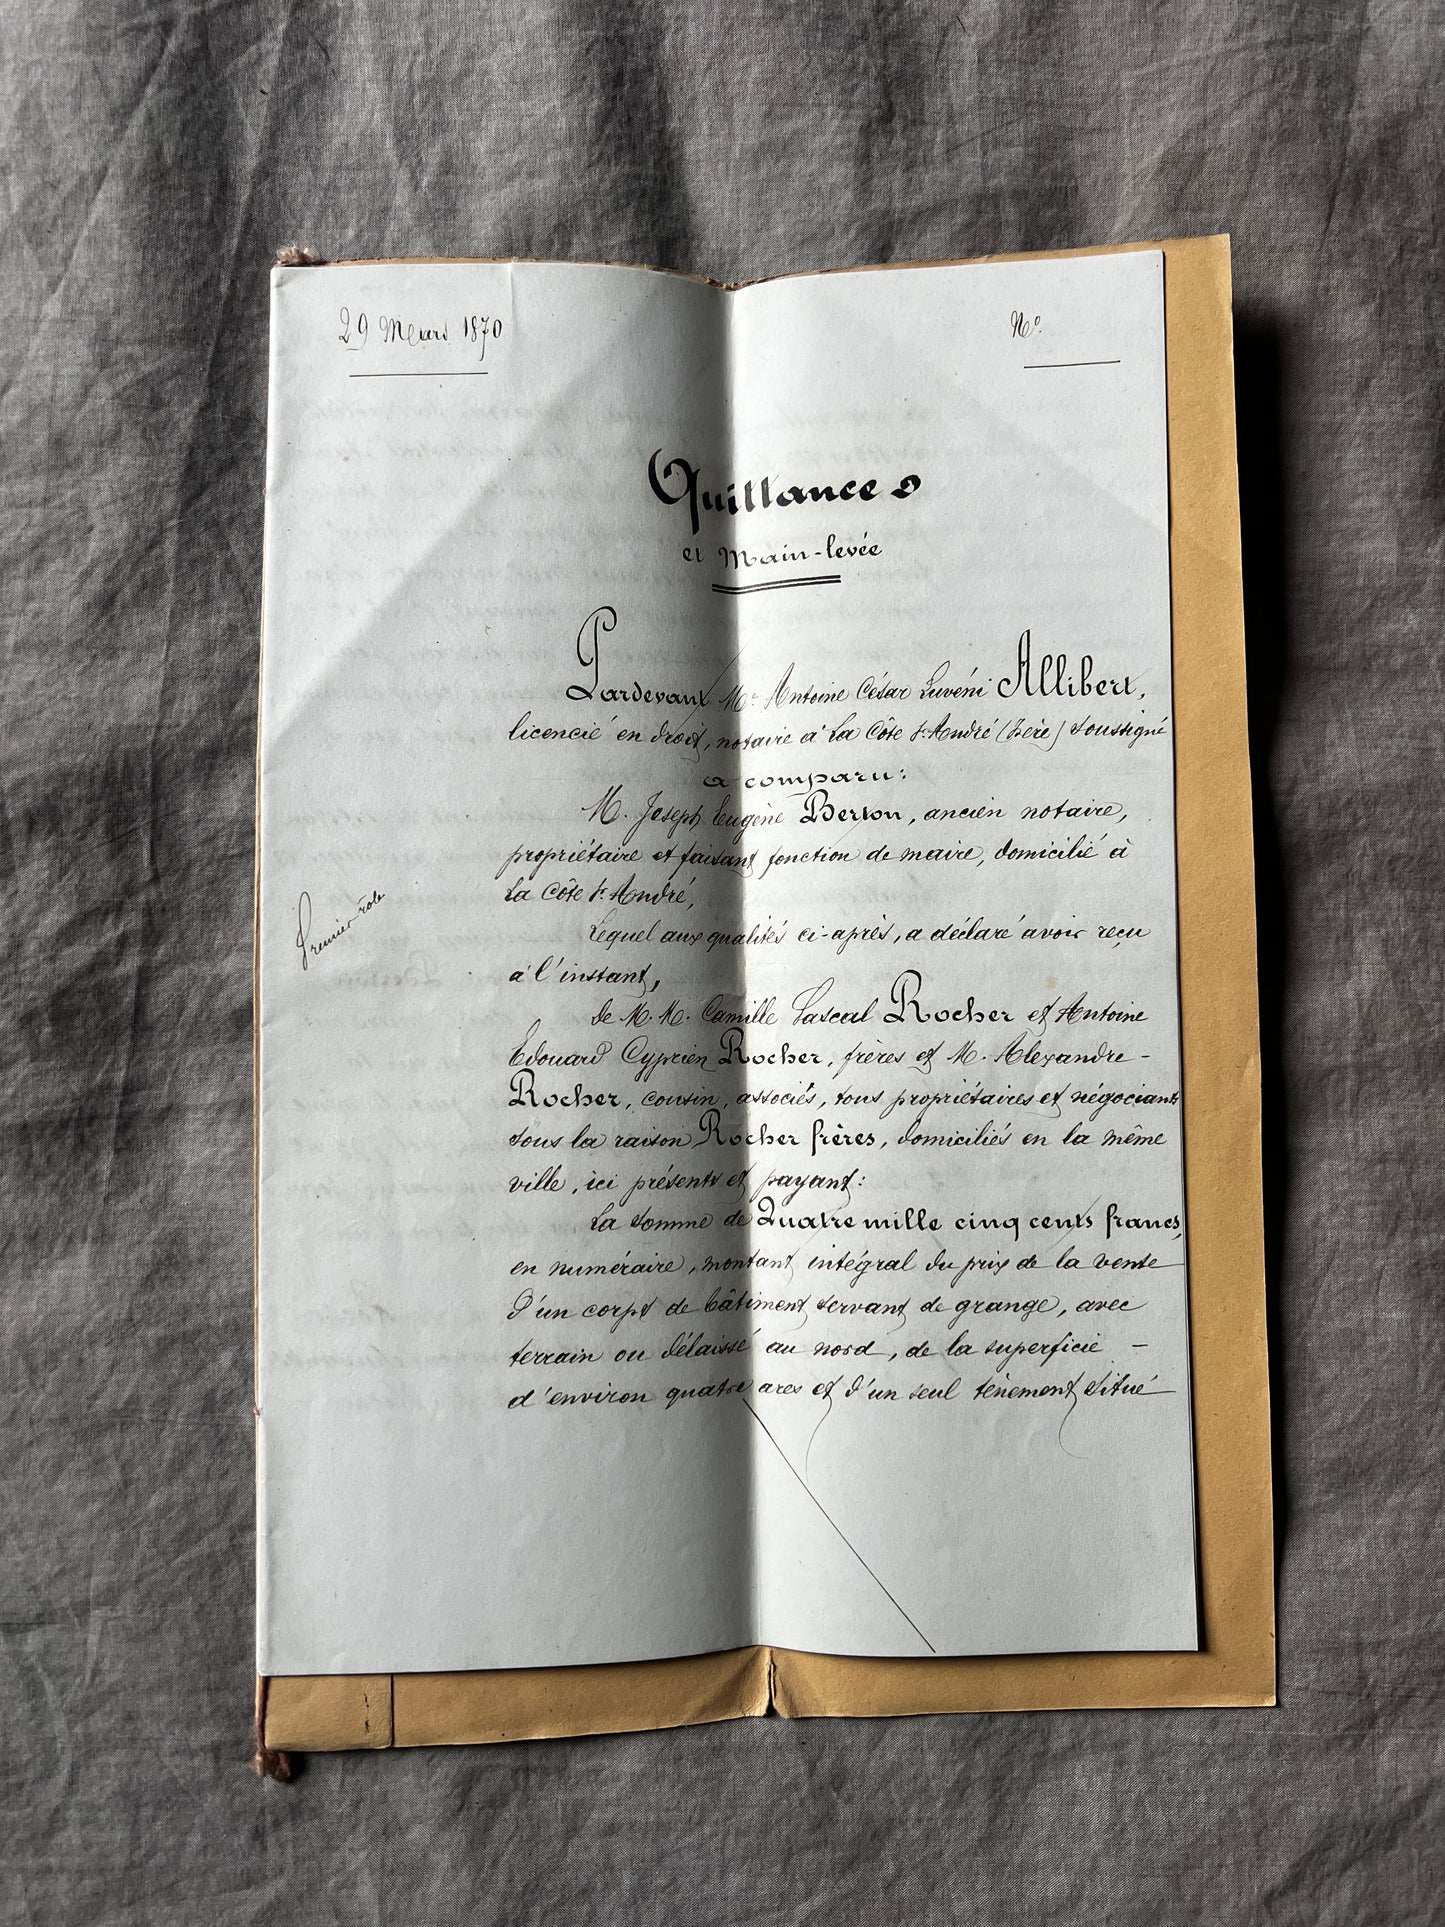 29 Mars 1870
N°.
Quittances
et Main-levée
Pardevant Me Antoine César Juvéni Allibert,
licencié en droit, notaire à La Côte St. André (Isère) soussigné
a comparu:
M. Joseph Eugène Berton, ancien notaire,
propriétaire et faisant fonction de maire, domicilié à
La Côte St. André,
Lequel aux qualités ci-après, a déclaré avoir reçu
à l'instant,
Premier rôle
de M. M. Camille Pascal Rocher et Antoine
Edouard Cyprien Rocher, frères et M. Alexandre-
Rocher, cousin, associés, tous propriétaires et négociants
sous la raison Rocher frères, domiciliés en la même
ville, ici présents et payant:
La somme de Quatre mille cinq cents francs,
en numéraire, montant intégral du prix de la vente
d'un corps de bâtiment servant de grange, avec
terrain ou délaissé au nord, de la superficie -
d'environ quatre ares et d'un seul tènement situé